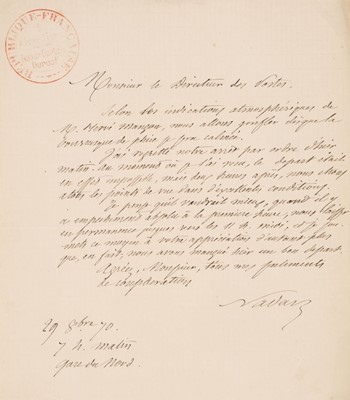 RÉPUBLIQUE-FRANÇAISE
Monsieur le Directeur des Postes.
Selon les indications atmosphériques de
M. Hervé Mangon, nous allons gonfler dès que la
bourrasque de pluie a peu calmé.
J'ai regretté notre arrêt par ordre d'hier
matin. Au moment où je l'ai reçu, le départ était
en effet impossible, mais deux heures après, nous étions
dans d'excellentes conditions.
Je pense qu'il vaudrait mieux, quand il y
a empêchement absolu à la première heure, nous laisser
en permanence jusques vers les 11 h. midi, et je
à votre appréciation d'autant plus
que, en fait, nous avons manqué hier un bon départ.
Agréez, Monsieur, tous nos
de considération
Nadar
29 8bre 70.
7 h. matin
Gare du Nord.